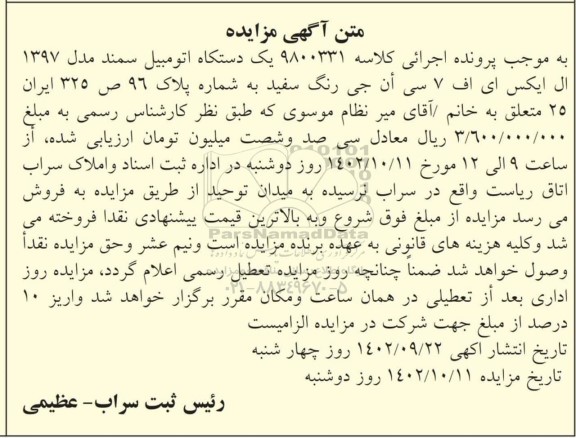 متن آگهی مزایده
به موجب پرونده اجرائی کلاسه ۹۸۰۰۳۳۱ یک دستگاه اتومبیل سمند مدل ۱۳۹۷
ال ایکس ای اف ۷ سی أن جی رنگ سفید به شماره پلاک ۹۶ ص ۳۲۵ ایران
۲۵ متعلق به خانم /آقای میر نظام موسوی که طبق نظر کارشناس رسمی به مبلغ
۳/۶۰۰/۰۰۰/۰۰۰ ریال معادل سی صد وشصت میلیون تومان ارزیابی شده، أز
ساعت ۹ الی ۱۲ مورخ ۱۴۰۲/۱۰/۱۱ روز دوشنبه در اداره ثبت اسناد واملاک سراب
اتاق ریاست واقع در سراب نرسیده به میدان توحید از طریق مزایده به فروش
می رسد مزایده از مبلغ فوق شروع وبه بالاترین قیمت پیشنهادی نقدا فروخته می
شد وکلیه هزینه های قانونی به عهده برنده مزایده است ونیم عشر وحق مزایده نقدأ
وصول خواهد شد ضمناً چنانچه روز مزایده تعطیل رسمی اعلام گردد، مزایده روز
اداری بعد أز تعطیلی در همان ساعت ومکان مقرر برگزار خواهد شد واریز ۱۰
درصد از مبلغ جهت شرکت در مزایده الزامیست
تاریخ انتشار اکهی ۱۴۰۲/۰۹/۲۲ روز چهار شنبه
تاریخ مزایده ۱۴۰۲/۱۰/۱۱ روز دوشنبه
رئیس ثبت سراب- عظیمی
ParsNamadData
۰۲۱-۸۸۳۴۹۶۷۰-۵